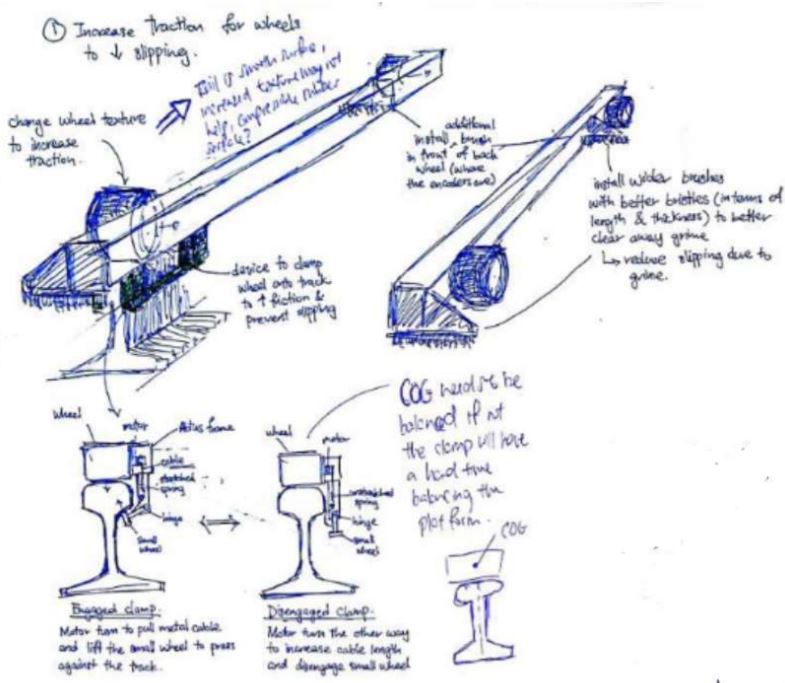 ① Increase traction for wheels
to ↓ slipping.
Rail is smooth surface,
increased texture may not
help, compressible rubber
surface?
change wheel texture
to increase
traction.
additional
install ^ brush
in front of back
wheel (where
the encoders are)
install wider brushes
with better bristles (in terms of
length & thickness) to better
clear away grime
↳ reduce slipping due to
grime.
device to clamp
wheel onto track
to ↑ friction &
prevent slipping
COG needs to be
balanced if not
the clamp will have
a hard time
balancing the
platform.
COG
wheel
motor
frame
cable
stretched
spring
hinge
small
wheel
wheel
motor
unstretched
spring
hinge
small
wheel
Engaged clamp.
Motor turn to pull metal cable
and lift the small wheel to press
against the track.
Disengaged clamp.
Motor turn the other way
to increase cable length
and disengage small wheel